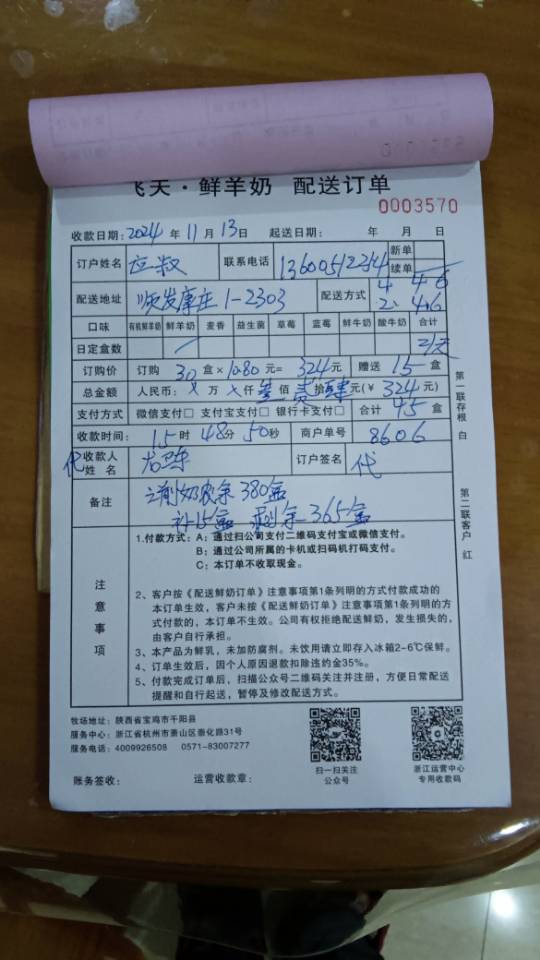 飞天·鲜羊奶 配送订单
0003570
收款日期: 2024 年 11 月 13 日 起送日期: 年 月 日
订户姓名 应叔 联系电话 13600512344 新单 续单
配送地址 顺发康庄 1-2303 配送方式 4 4 6 2 4 6
口味 有机鲜羊奶 鲜羊奶 麦香 益生菌 草莓 蓝莓 鲜牛奶 酸牛奶 合计
日定盒数 2/天
订购价 订购 30 盒×10.80 元= 324 元 赠送 15 盒
总金额 人民币: × 万 × 仟 叁 佰 贰 拾 肆 元(¥ 324 元)
支付方式 微信支付□ 支付宝支付□ 银行卡支付□ 合计 45 盒
收款时间: 15 时 48 分 50 秒 商户单号 8606
代 收款人姓名 订户签名 代
备注 之前奶农余 380盒
补15盒 剩余 365盒
注意事项
1.付款方式: A: 通过扫公司支付二维码支付宝或微信支付。
B: 通过公司所属的卡机或扫码机打码支付。
C: 本订单不收取现金。
2、客户按《配送鲜奶订单》注意事项第1条列明的方式付款成功的
本订单生效,客户未按《配送鲜奶订单》注意事项第1条列明的方
式付款的,本订单不生效。公司有权拒绝配送鲜奶,发生损失的,
由客户自行承担。
3、本产品为鲜乳,未加防腐剂。未饮用请立即存入冰箱2-6℃保鲜。
4、订单生效后,因个人原因退款扣除违约金35%。
5、付款完成订单后,扫描公众号二维码关注并注册,方便日常配送
提醒和自行起送,暂停及修改配送方式。
第一联存根 白
第二联客户 红
牧场地址: 陕西省宝鸡市千阳县
服务中心: 浙江省杭州市萧山区崇化路31号
服务电话: 4009926508 0571-83007277
账务签收: 运营收款章:
扫一扫关注
公众号
浙江运营中心
专用收款码